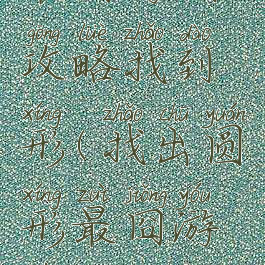 gōng lüè zhǎo dào
攻略找到
xíng zhǎo chū yuán
形(找出圓
xíng zuì jiǒng yóu
形最囧游